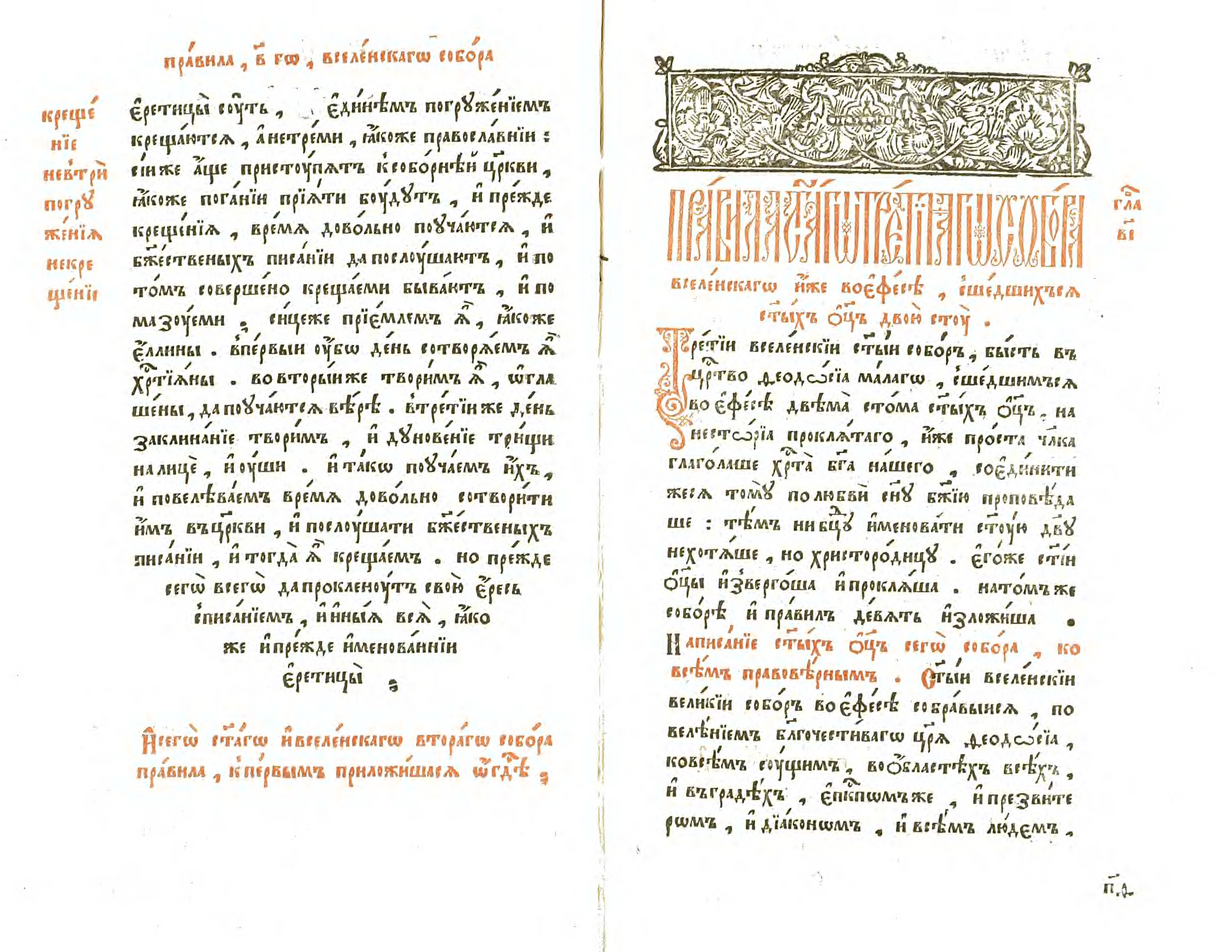 пра́вила , в҃ гѡ , вселе́нскагѡ собо́ра
креще́
нїе
невтрѝ
погру
же́нїѧ
некре
ще́нїе
є҆ретицы̀ сꙋ́ть , є҆ди́нѣмъ погрꙋже́нїемъ
креща́ютсѧ , а҆ нетре́ми , ꙗ҆́коже правосла́внїи :
сі́и же а҆́ще пристꙋ́пѧтъ ксобо́рнѣй цр҃кви ,
ꙗ҆́коже пога́нїи прїѧ́ти бꙋ́дꙋтъ , и҆ пре́жде
креще́нїѧ , вре́мѧ дово́льно поꙋча́ютсѧ , и҆
бж҃е́ственыхъ писа́нїи да послꙋ́шаютъ , и҆ по
то́мъ соверше́но креща́еми быва́ютъ , и҆ по
мазꙋ́еми ; си́цеже прїе́млемъ ѧ҆̀ , ꙗ҆́коже
є҆́ллины . впе́рвыи ᲂу҆́бѡ де́нь сотворѧ́емъ ѧ҆̀
хр҃тїѧ́ны . во вторы́и же твори́мъ ѧ҆̀ , ѡ҆гла
ше́ны , да поꙋча́ютсѧ вѣ́рѣ . втре́тїи же де́нь
заклина́нїе твори́мъ , и҆ дꙋнове́нїе три́щи
на лицѐ , и҆ ᲂу҆́ши . и҆ та́кѡ поꙋча́емъ и҆́хъ ,
и҆ повелѣва́емъ вре́мѧ дово́льно сотвори́ти
и҆̀мъ въ цр҃кви , и҆ послꙋ́шати бж҃е́ственыхъ
писа́нїи , и҆ тогда̀ ѧ҆̀ креща́емъ . но пре́жде
сегѡ̀ всегѡ̀ да прокленꙋ́тъ свою̀ є҆́ресь
с̾писа́нїемъ , и҆ и҆ны́ѧ всѧ̀ , ꙗ҆́ко
же и҆ пре́жде и҆менова́ннїи
є҆ретицы̀ ;
И҆ сегѡ̀ ст҃а́гѡ и҆ вселе́нскагѡ втора́гѡ собо́ра
пра́вила , кпе́рвымъ приложи́шасѧ ѿгдѣ̀ ;
гла̀
в҃і
пра́вила ст҃а́гѡ тре́тїѧгѡ собо́ра
вселе́нскагѡ и҆́же во є҆фе́сѣ , с̾ше́дшихъсѧ
ст҃ы́хъ ѻ҆ц҃ъ двою̀ стꙋ̀ .
Тре́тїи вселе́нскїи ст҃ы́и собо́ръ , бы́сть въ
цр҃тво ѳеодо́сїа ма́лагѡ , с̾ше́дшимъсѧ
во є҆фе́сѣ двѣма̀ сто́ма ст҃ы́хъ ѻ҆ц҃ъ . на
несто́рїа проклѧ́таго , и҆́же про́ста чл҃ка
глаго́лаше хр҃та̀ бг҃а на́шего , соединѝти
жесѧ томꙋ̀ по любвѝ сн҃ꙋ бж҃їю проповѣ́да
ше : тѣ́мъ ни бц҃ꙋ и҆менова́ти ст҃ꙋ́ю дв҃ꙋ
нехотѧ́ше , но христоро́дицꙋ . є҆го́же ст҃і́и
ѻ҆ц҃ы и҆зверго́ша и҆ проклѧ́ша . на то́мъ же
собо́рѣ и҆ пра́вилъ де́вѧть и҆зложи́ша .
Написа́нїе ст҃ы́хъ ѻ҆ц҃ъ сегѡ̀ собо́ра , ко
всѣ́мъ правовѣ́рнымъ . Ст҃ы́и вселе́нскїи
вели́кїи собо́ръ во є҆фе́сѣ собра́выисѧ , по
велѣ́нїемъ бл҃гочести́вагѡ цр҃ѧ̀ ѳеодо́сїа ,
ковсѣ́мъ сꙋ́щимъ , во ѻ҆́бластѣхъ всѣ́хъ ,
и҆ въ гра́дѣхъ , є҆пк҃пѡмъ же , и҆ презви́те
рѡмъ , и҆ дїа́конѡмъ , и҆ всѣ́мъ лю́демъ ,
п҃д